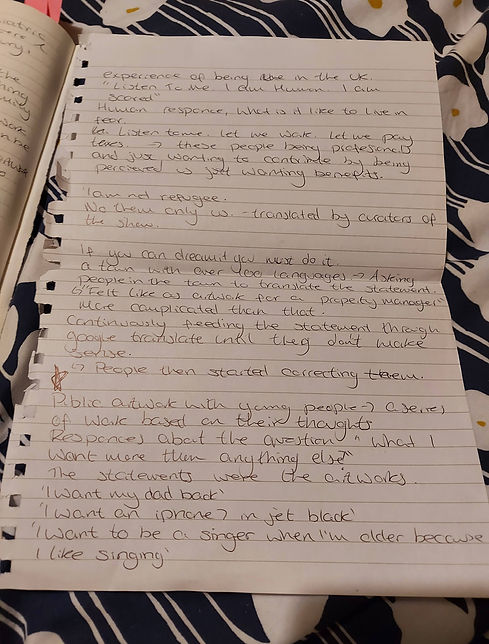 experience of being in the UK.
"Listen To me. I am Human. I am
scared"
Human responce, what is it like to live in
fear.
Listen to me. let we walk. let we pay
taxes. → these people being profesionals
and just wanting to contribute by being
percieved as just wanting benefits.
'I am not refugee.
No them only us. - translated by curators of
the show.
If you can dream it you must do it.
a town with over 400 languages → Asking
people in the town to translate the statement.
↳ 'Felt like as artwork for a property manager"
More complicated than that.
Continuously feeding the statement through
google translate until they don't make
sense.
↳ People then started correcting them.
Public artwork with young people → a series
of work based on their thoughts
Responces about the question "What I
want more then anything else"
The statements were the artworks.
'I want my dad back'
'I want an iphone 7 in jet black'
'I want to be a singer when I'm older because
I like singing'